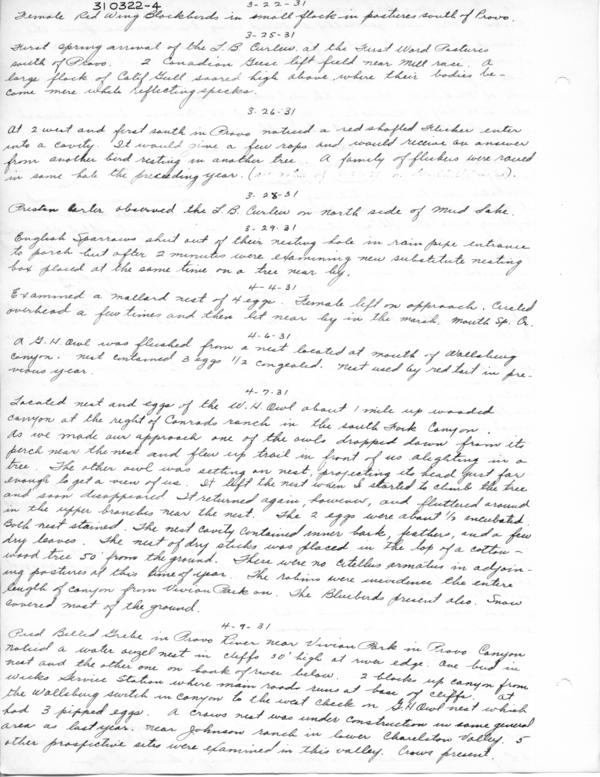 310322-4
3-22-31
Female Red Wing Blackbirds in small flock in pastures south of Provo.
3-25-31
First spring arrival of the L.B. Curlew at the First Ward Pastures
south of Provo. 2 Canadian Geese left field near Mill race. A
large flock of Calif Gull soared high above where their bodies be-
come mere white reflecting specks.
3-26-31
At 2 west and first south in Provo noticed a red shafted Flicker enter
into a cavity. It would give a few raps and would receive an answer
from another bird resting in another tree. A family of flickers were raised
in same hole the preceding year.
3-28-31
Preston observed the L.B. Curlew on north side of Mud Lake.
3-29-31
English Sparrows shut out of their nesting hole in rain pipe entrance
to porch but after 2 minutes were examining new substitute nesting
box placed at the same time on a tree near by.
4-4-31
Examined a mallard nest of 4 eggs. Female left on approach. Circled
overhead a few times and then lit near by in the marsh. Mouth Sp. Cr.
4-6-31
A G.H. Owl was flushed from a nest located at mouth of Wallsburg
Canyon. Nest contained 3 eggs 1/2 congealed. Nest used by red tail in pre-
vious year.
4-7-31
Located nest and eggs of the W.H. Owl about 1 mile up wooded
canyon at the right of Conrads ranch in the south Fork Canyon.
As we made our approach one of the owls dropped down from its
perch near the nest and flew up trail in front of us alighting in a
tree. The other owl was setting on nest, projecting its head just far
enough to get a view of us. It left the nest when I started to climb the tree
and soon disappeared It returned again, however, and fluttered around
in the upper branches near the nest. The 2 eggs were about 1/3 incubated,
Both nest stained. The nest cavity contained inner bark, feathers, and a few
dry leaves. The nest of dry sticks was placed in the top of a cotton-
wood tree 50' from the ground. There were no Citellus armatus in adjoin-
ing pastures at this time of year. The robins were in evidence the entire
length of canyon from Vivian Park on. The Bluebirds present also. Snow
covered most of the ground.
4-9-31
Pied Billed Grebe in Provo River near Vivian Park in Provo Canyon
noticed a water ouzel nest in cliffs 30' high at river edge. One bird in
nest and the other one on bank of river below. 2 blocks up canyon from
Wicks Service Station where main roads runs at base of cliffs. At
the Wallsburg switch in canyon to the west check on G.H Owl nest which
had 3 pipped eggs. A crows nest was under construction in same general
area as last year, near Johnson ranch in lower Charelston Valley. 5
other prospective sites were examined in this valley. Crows present.